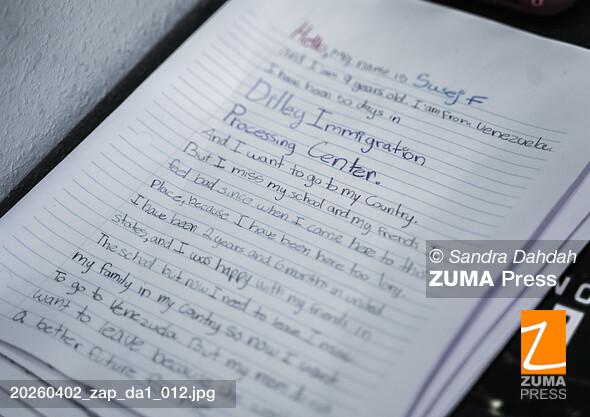 Hello, My name is Susej F
And I am 9 years old. I am from Venezuela.
I have been 50 days in
Dilley Immigration
Processing Center.
And I want to go to my Country.
But I miss my school and my friends I
feel bad since when I came here to this
Place, because I have been here too long.
I have been 2 years and 6 months in united
states, and I was happy with my friends in
The school but now I need to leave. I miss
my family in my Country so now I want
To go to Venezuela. But my mom
want to leave because
a better future
© Sandra Dahdah
ZUMA Press
20260402_zap_da1_012.jpg
Z
ZUMA
PRESS